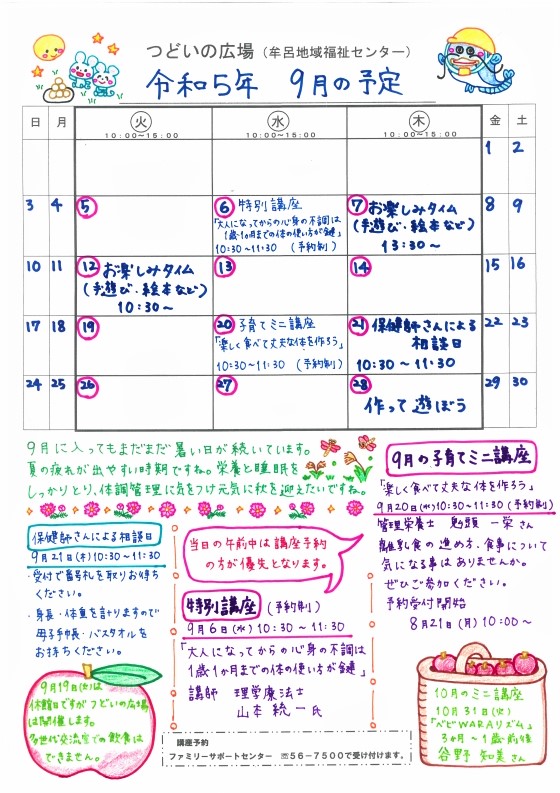 つどいの広場（牟呂地域福祉センター）
令和5年 9月の予定
日 月 火 水 木 金 土
10:00~15:00 10:00~15:00 10:00~15:00
1 2
3 4 5 6 特別講座 7 お楽しみタイム 8 9
「大人になってからの心身の不調は
1歳1か月までの体の使い方が鍵」
10:30~11:30 (予約制)
(手遊び・絵本など)
13:30~
10 11 12 お楽しみタイム 13 14 15 16
(手遊び・絵本など)
10:30~
17 18 19 20 子育てミニ講座 21 保健師さんによる 22 23
相談日
「楽しく食べて丈夫な体を作ろう」
10:30~11:30 (予約制)
10:30~11:30
24 25 26 27 28 29 30
作って遊ぼう
9月に入ってもまだまだ暑い日が続いています。
夏の疲れが出やすい時期ですね。栄養と睡眠を
しっかりとり、体調管理に気をつけ元気に秋を迎えたいですね。
保健師さんによる相談日
9月21日(木)10:30~11:30
・受付で番号札を取りお待ち
ください。
・身長・体重を計りますので
母子手帳・バスタオルを
お持ちください。
9月19日(火)は
休館日ですがつどいの広場
は開催します。
多世代交流室での飲食は
できません。
当日の午前中は講座予約
の方が優先となります。
特別講座 (予約制)
9月6日(水)10:30~11:30
「大人になってからの心身の不調は
1歳1か月までの体の使い方が鍵」
講師 理学療法士
山本 統一氏
講座予約
ファミリーサポートセンター ☏56-7500で受け付けます。
9月の子育てミニ講座
「楽しく食べて丈夫な体を作ろう」
9月20日(水)10:30~11:30(予約制)
管理栄養士 一栄さん
離乳食の進め方、食事について
気になる事はありませんか。
ぜひご参加ください。
予約受付開始
8月21日(月)10:00~
10月のミニ講座
10月31日(火)
「ベビWARAリズム」
3ヶ月~1歳前後
谷野 知美さん